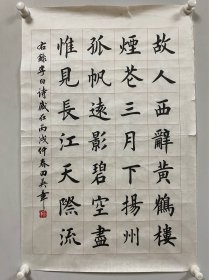 故人西辭黃鶴樓
煙花三月下揚州
孤帆遠影碧空盡
惟見長江天際流
右錄李白詩歲在丙戌仲春田英書